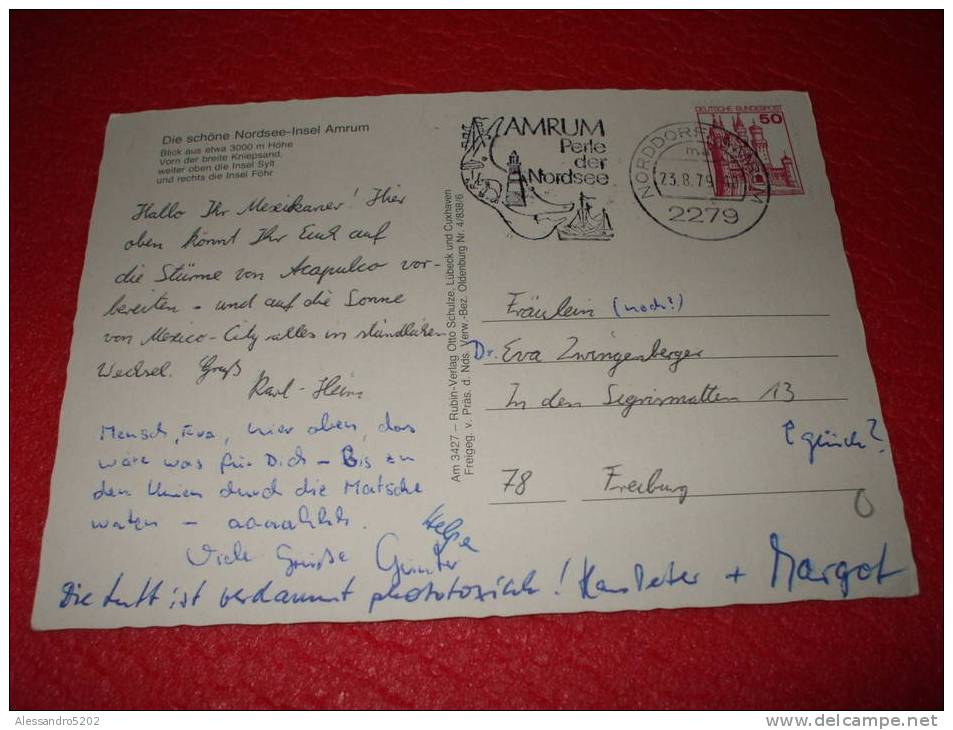 Die schöne Nordsee-Insel Amrum
Blick aus etwa 3000 m Höhe
Vorn der breite Kniepsand,
weiter oben die Insel Sylt
und rechts die Insel Föhr
Hallo Ihr Mexikaner! Hier
oben könnt Ihr Euch auf
die Stürme von Acapulco vor-
bereiten – und auf die Sonne
von Mexico-City alles im stündlichen
Wechsel. Gruß
Karl-Heinz
Mensch, Eva, hier oben, das
wäre was für Dich – Bis zu
den Knien durch die Matsche
waten – aaaahhh.
Helga
Viele Grüße Günter
Die Luft ist verdammt phototoxisch! Hans Peter + Margot
Am 3427 – Rubin-Verlag Otto Schulze, Lübeck und Cuxhaven
Freigeg. v. Präs. d. Nds. Verw.-Bez. Oldenburg Nr. 4/838/6
AMRUM
Perle
der
Nordsee
NORDDORF AMRUM
23.8.79
2279
DEUTSCHE BUNDESPOST
50
Fräulein (noch?)
Dr. Eva Zwingenberger
In den Sigrismatten 13
78 Freiburg
Alessandro5202
www.delcampe.net